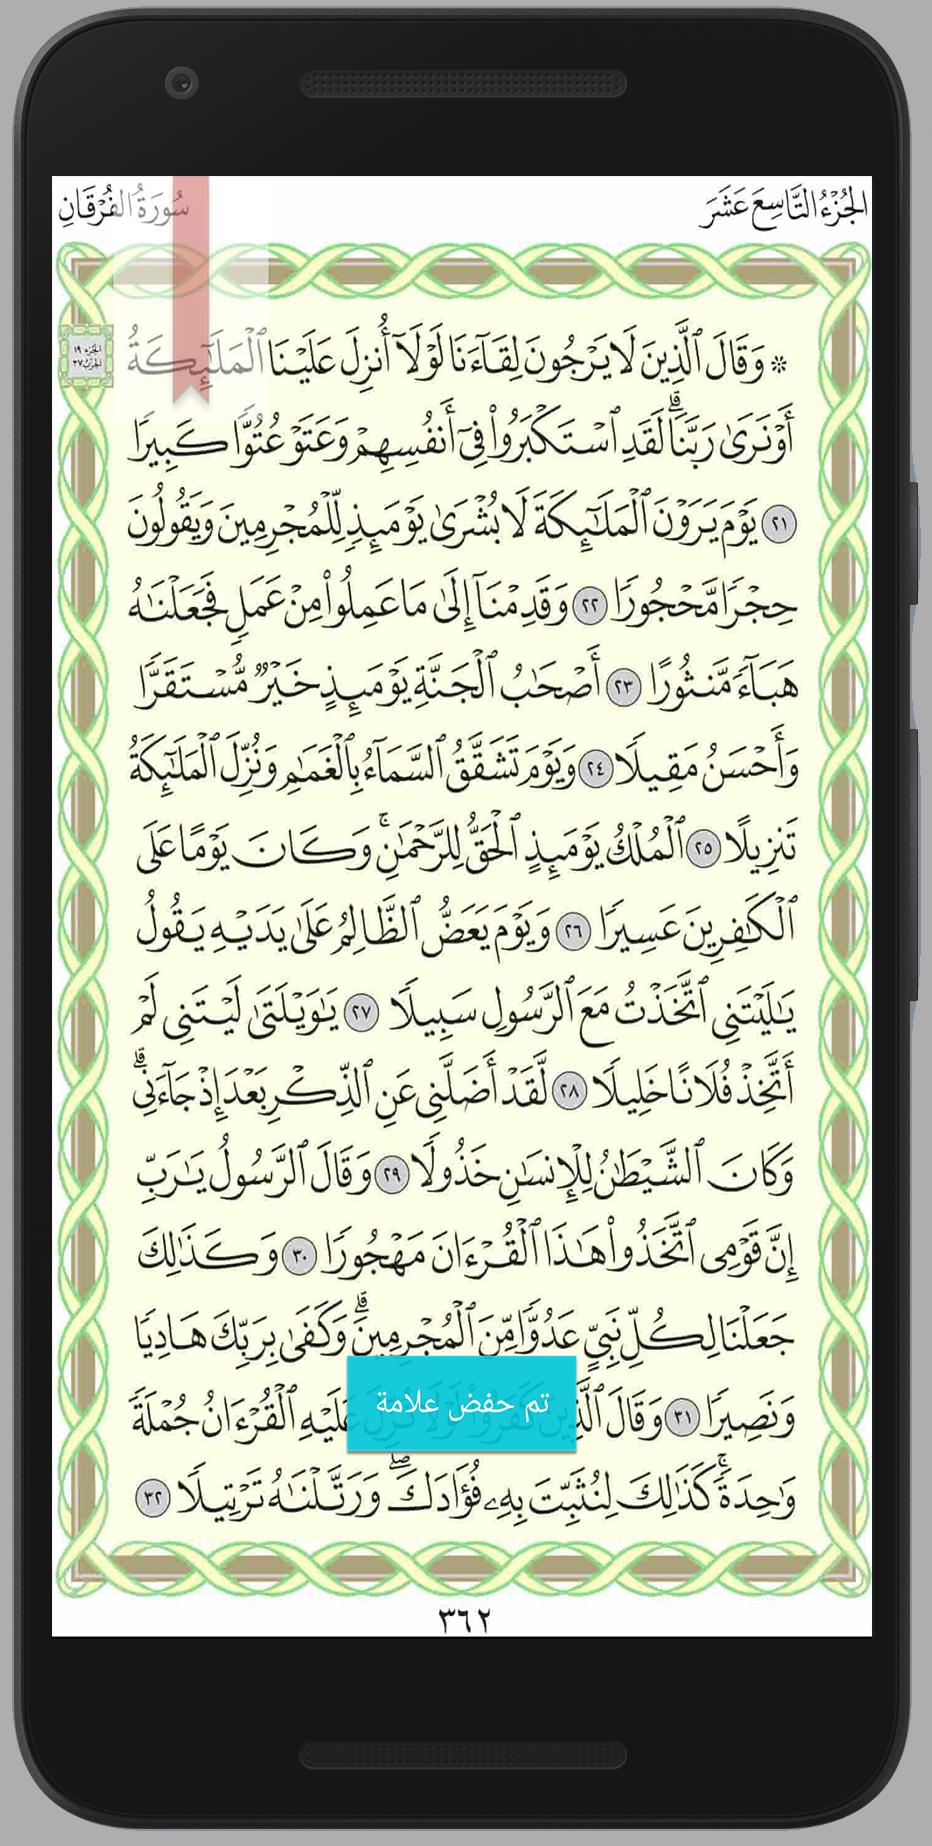 الجُزْءُ التَّاسِعَ عَشَرَ
سُورَةُ الفُرْقَانِ
الجزء ١٩
الحزب ٣٧
۞ وَقَالَ ٱلَّذِينَ لَا يَرْجُونَ لِقَآءَنَا لَوْلَآ أُنزِلَ عَلَيْنَا ٱلْمَلَـٰٓئِكَةُ
أَوْ نَرَىٰ رَبَّنَا ۗ لَقَدِ ٱسْتَكْبَرُوا۟ فِىٓ أَنفُسِهِمْ وَعَتَوْ عُتُوًّا كَبِيرًا
٢١ يَوْمَ يَرَوْنَ ٱلْمَلَـٰٓئِكَةَ لَا بُشْرَىٰ يَوْمَئِذٍ لِّلْمُجْرِمِينَ وَيَقُولُونَ
حِجْرًا مَّحْجُورًا ٢٢ وَقَدِمْنَآ إِلَىٰ مَا عَمِلُوا۟ مِنْ عَمَلٍ فَجَعَلْنَـٰهُ
هَبَآءً مَّنثُورًا ٢٣ أَصْحَـٰبُ ٱلْجَنَّةِ يَوْمَئِذٍ خَيْرٌ مُّسْتَقَرًّا
وَأَحْسَنُ مَقِيلًا ٢٤ وَيَوْمَ تَشَقَّقُ ٱلسَّمَآءُ بِٱلْغَمَـٰمِ وَنُزِّلَ ٱلْمَلَـٰٓئِكَةُ
تَنزِيلًا ٢٥ ٱلْمُلْكُ يَوْمَئِذٍ ٱلْحَقُّ لِلرَّحْمَـٰنِ ۚ وَكَانَ يَوْمًا عَلَى
ٱلْكَـٰفِرِينَ عَسِيرًا ٢٦ وَيَوْمَ يَعَضُّ ٱلظَّالِمُ عَلَىٰ يَدَيْهِ يَقُولُ
يَـٰلَيْتَنِى ٱتَّخَذْتُ مَعَ ٱلرَّسُولِ سَبِيلًا ٢٧ يَـٰوَيْلَتَىٰ لَيْتَنِى لَمْ
أَتَّخِذْ فُلَانًا خَلِيلًا ٢٨ لَّقَدْ أَضَلَّنِى عَنِ ٱلذِّكْرِ بَعْدَ إِذْ جَآءَنِى ۗ
وَكَانَ ٱلشَّيْطَـٰنُ لِلْإِنسَـٰنِ خَذُولًا ٢٩ وَقَالَ ٱلرَّسُولُ يَـٰرَبِّ
إِنَّ قَوْمِى ٱتَّخَذُوا۟ هَـٰذَا ٱلْقُرْءَانَ مَهْجُورًا ٣٠ وَكَذَٰلِكَ
جَعَلْنَا لِكُلِّ نَبِىٍّ عَدُوًّا مِّنَ ٱلْمُجْرِمِينَ ۗ وَكَفَىٰ بِرَبِّكَ هَادِيًا
وَنَصِيرًا ٣١ وَقَالَ ٱلَّذِينَ كَفَرُوا۟ لَوْلَا نُزِّلَ عَلَيْهِ ٱلْقُرْءَانُ جُمْلَةً
تم حفض علامة
وَٰحِدَةً ۚ كَذَٰلِكَ لِنُثَبِّتَ بِهِۦ فُؤَادَكَ ۖ وَرَتَّلْنَـٰهُ تَرْتِيلًا ٣٢
٣٦٢